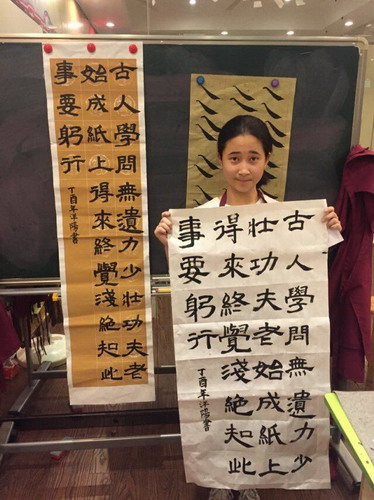 古人學問無遺力少壯功夫老
始成紙上得來終覺淺絕知此
事要躬行
丁酉年洋書
古人學問無遺力少
壯功夫老始成紙上
得來終覺淺絕知此
事要躬行
丁酉年洋書